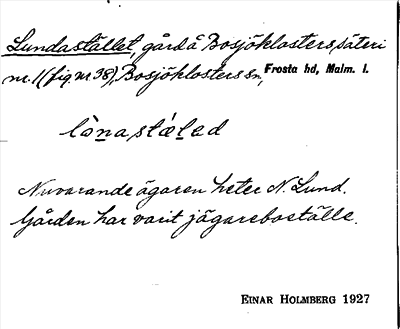 Lundastället, gård å Bosjöklosters säteri
nr. 1 (fig nr 38), Bosjöklosters sn, Frosta hd, Malm. l.
Nuvarande ägaren heter N. Lund.
Gården har varit jägareboställe.
EINAR HOLMBERG 1927